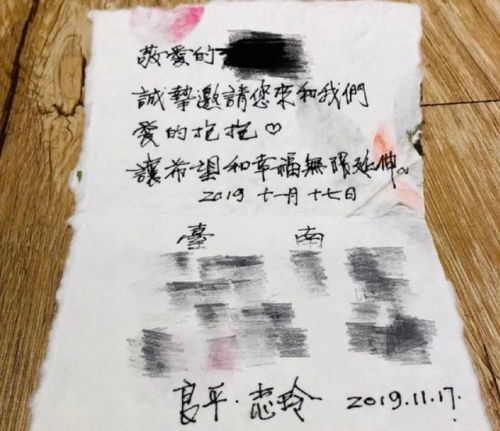 敬愛的
誠摯邀請您來和我們
愛的抱抱♡
讓希望和幸福無限延伸。
2019 十一月 十七日
臺 南
良平·志玲 2019.11.17.